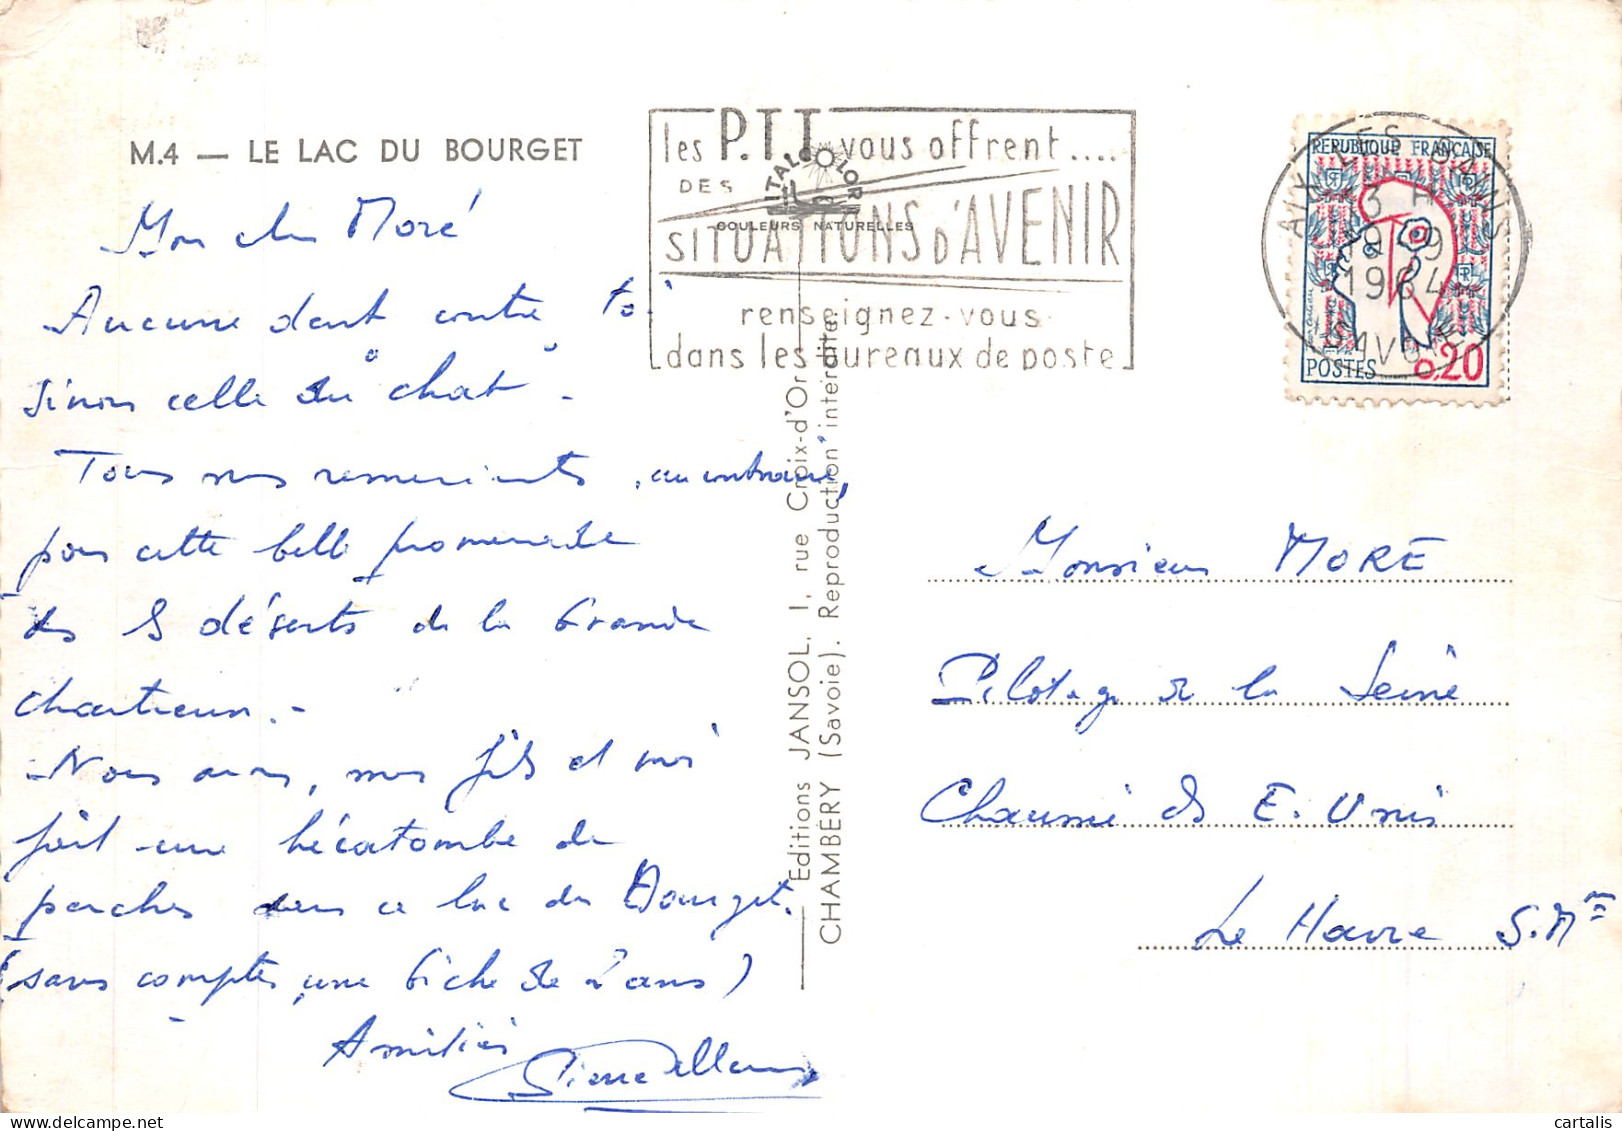 M.4 — LE LAC DU BOURGET
les P.T.T. vous offrent....
DES
SITUATIONS D'AVENIR
renseignez-vous
dans les bureaux de poste
ITALCOLOR
COULEURS NATURELLES
AIX LES BAINS
13 H
19 - 9
1964
SAVOIE
REPUBLIQUE FRANÇAISE
POSTES 0,20
Mon cher Moré
Aucune dent contre toi
sinon celle du "chat".
Tous nos remerciements, au contraire,
pour cette belle promenade
des déserts de la Grande
chartreuse.-
Nous avons, mes fils et moi
fait une hécatombe de
perches dans ce lac du Bourget.
(sans compter une biche de 2 ans)
Amitiés
Pierre
Editions JANSOL, 1, rue Croix-d'Or
CHAMBÉRY (Savoie). Reproduction interdite.
Monsieur MORE
Pilotage de la Seine
Chaussée des E. Unis
Le Havre S.Mme
cartalis